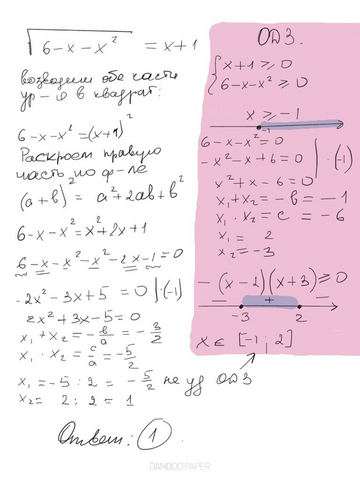 √6-x-x² = x+1
возводим обе части
ур-я в квадрат:
6-x-x² = (x+1)²
Раскроем правую
часть по ф-ле
(a+b)² = a²+2ab+b²
6-x-x² = x²+2x+1
6-x-x²-x²-2x-1=0
-2x²-3x+5=0 |·(-1)
2x²+3x-5=0
x₁+x₂ = -b/a = -3/2
x₁·x₂ = c/a = -5/2
x₁ = -5:2 = -5/2 не уд ОДЗ
x₂ = 2:2 = 1
Ответ: 1.
ОДЗ.
{ x+1 ≥ 0
6-x-x² ≥ 0
x ≥ -1
-1
6-x-x²=0
-x²-x+6=0 |·(-1)
x²+x-6=0
x₁+x₂ = -b = -1
x₁·x₂ = c = -6
x₁ = 2
x₂ = -3
-(x-2)(x+3) ≥ 0
- + -
-3 2
x ∈ [-1; 2]
BAMBOO PAPER